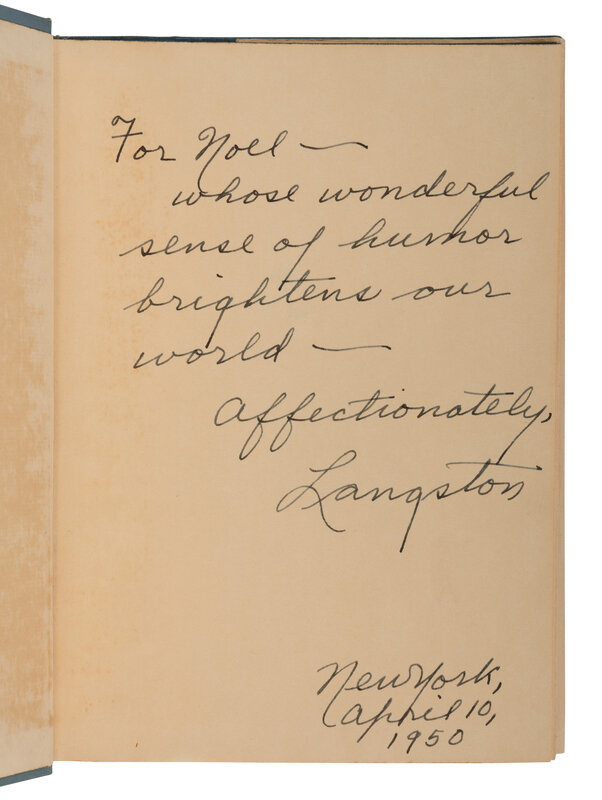 For Noel —
whose wonderful
sense of humor
brightens our
world —
affectionately,
Langston
New York,
April 10,
1950